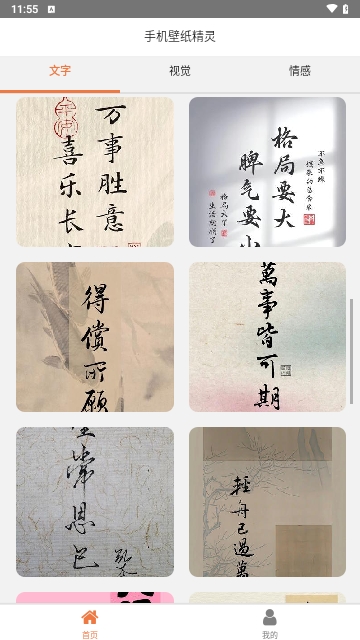 11:55
手机壁纸精灵
文字
视觉
情感
万事胜意
喜乐长
格局要大
脾气要小
格局大了
生活就顺了
得偿所愿
萬事皆可期
常
恩
輕舟已過萬
首页
我的